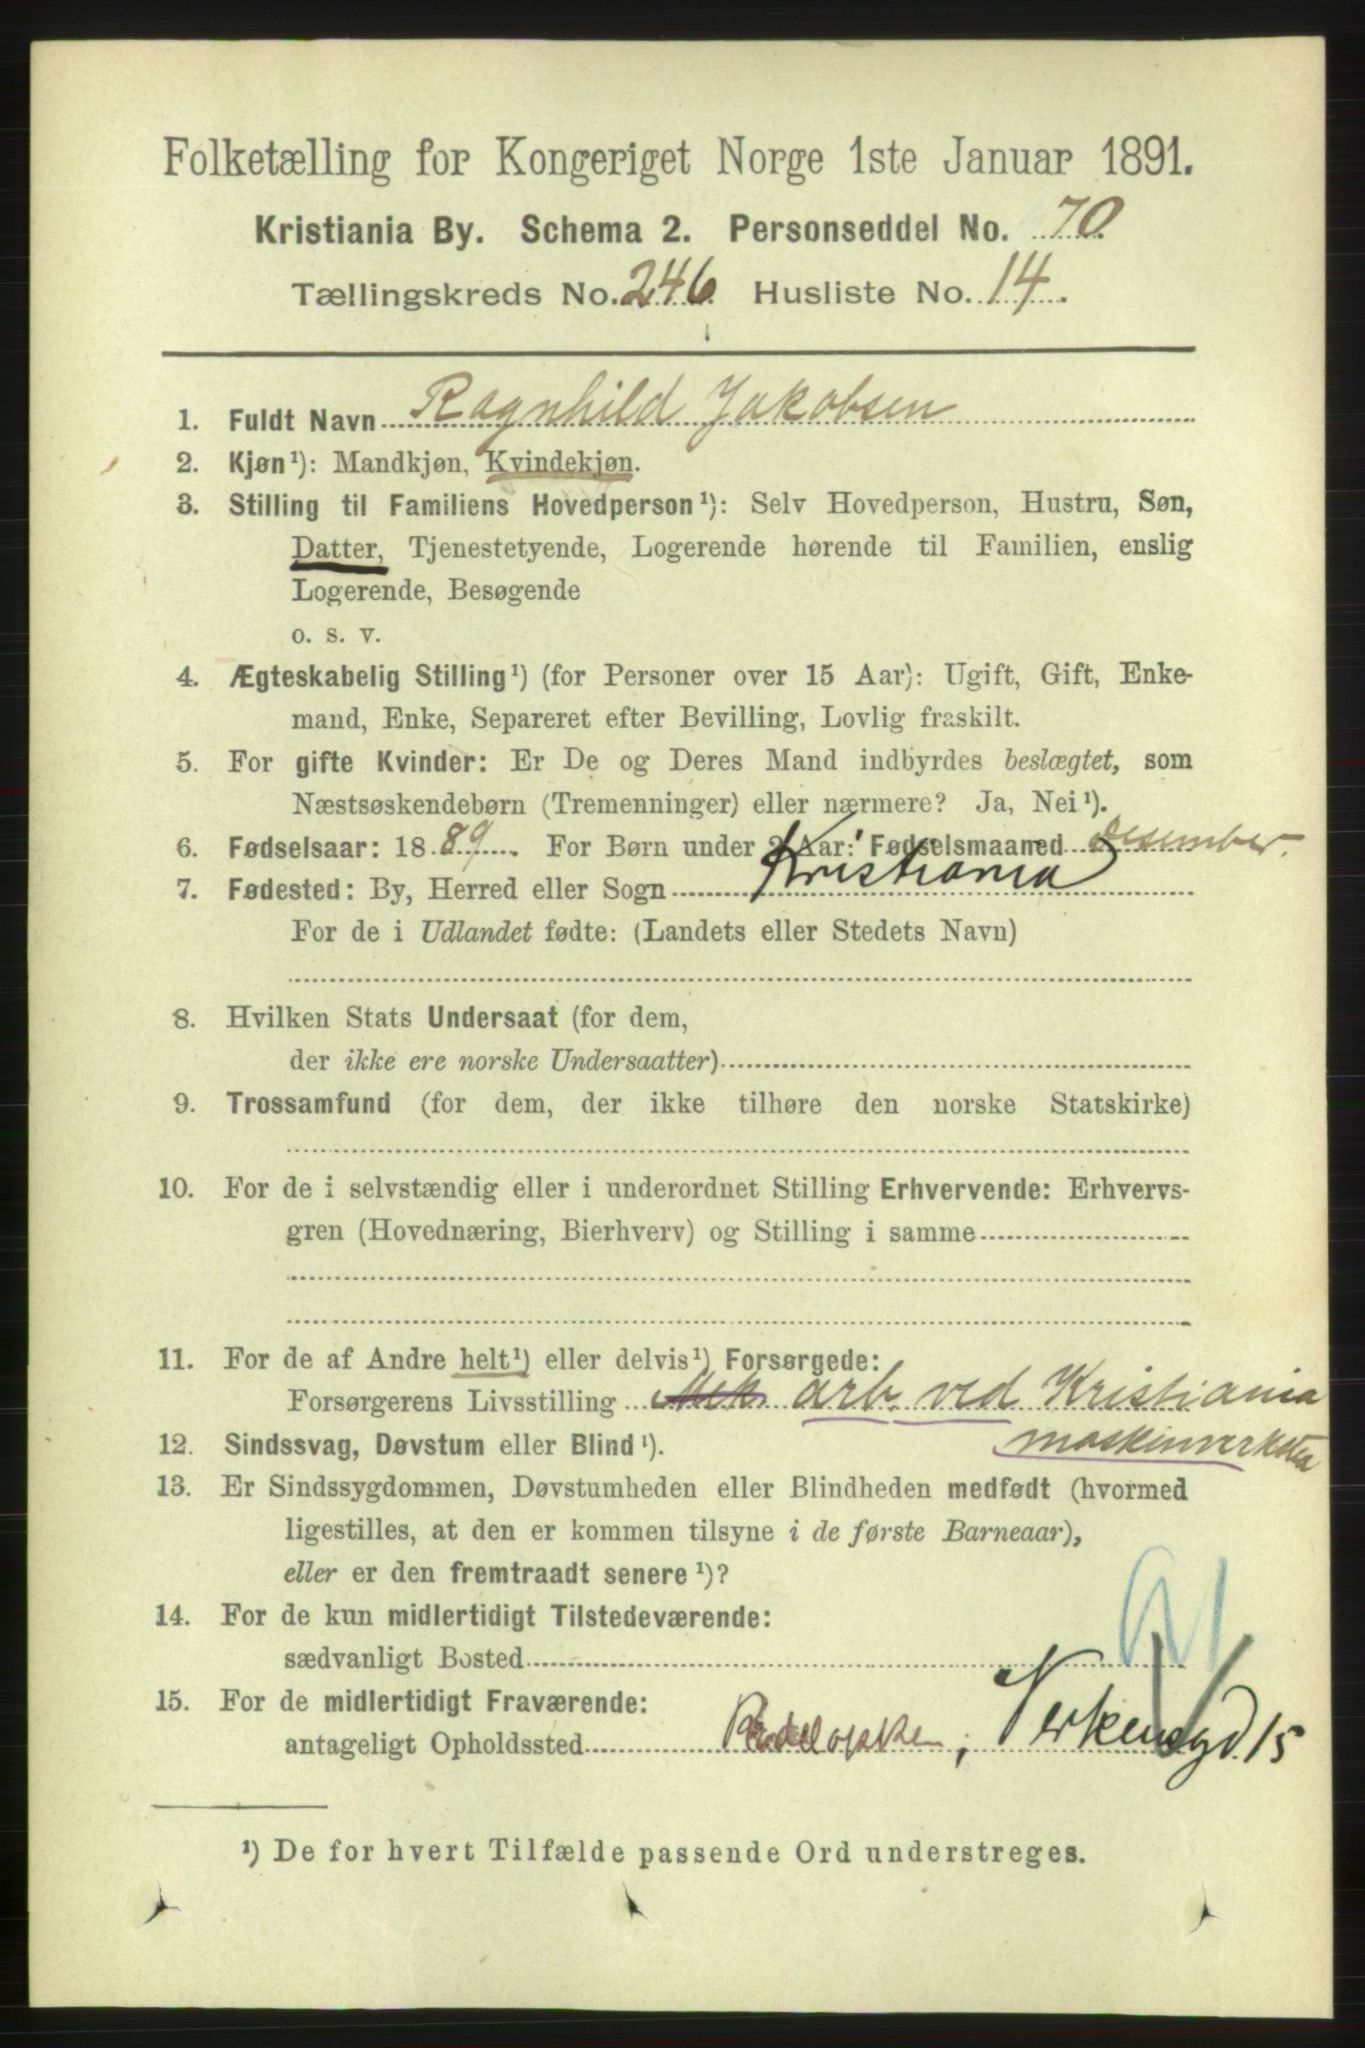 Folketælling for Kongeriget Norge 1ste Januar 1891.
Kristiania By. Schema 2. Personseddel No. 70
Tællingskreds No. 246 Husliste No. 14.
1. Fuldt Navn Ragnhild Jakobsen
2. Kjøn¹): Mandkjøn, Kvindekjøn.
3. Stilling til Familiens Hovedperson¹): Selv Hovedperson, Hustru, Søn,
Datter, Tjenestetyende, Logerende hørende til Familien, enslig
Logerende, Besøgende
o. s. v.
4. Ægteskabelig Stilling¹) (for Personer over 15 Aar): Ugift, Gift, Enke-
mand, Enke, Separeret efter Bevilling, Lovlig fraskilt.
5. For gifte Kvinder: Er De og Deres Mand indbyrdes beslægtet, som
Næstsøskendebørn (Tremenninger) eller nærmere? Ja, Nei¹).
6. Fødselsaar: 1889. For Børn under 2 Aar: Fødselsmaaned Desember.
7. Fødested: By, Herred eller Sogn Kristiania
For de i Udlandet fødte: (Landets eller Stedets Navn)
8. Hvilken Stats Undersaat (for dem,
der ikke ere norske Undersaatter)
9. Trossamfund (for dem, der ikke tilhøre den norske Statskirke)
10. For de i selvstændig eller i underordnet Stilling Erhvervende: Erhvervs-
gren (Hovednæring, Bierhverv) og Stilling i samme
11. For de af Andre helt¹) eller delvis¹) Forsørgede:
Forsørgerens Livsstilling Mek arb. ved Kristiania
maskinverksted
12. Sindssvag, Døvstum eller Blind¹).
13. Er Sindssygdommen, Døvstumheden eller Blindheden medfødt (hvormed
ligestilles, at den er kommen tilsyne i de første Barneaar),
eller er den fremtraadt senere¹)?
14. For de kun midlertidigt Tilstedeværende:
sædvanligt Bosted
15. For de midlertidigt Fraværende:
antageligt Opholdssted Rodeløkken, Verkensgd 15
¹) De for hvert Tilfælde passende Ord understreges.